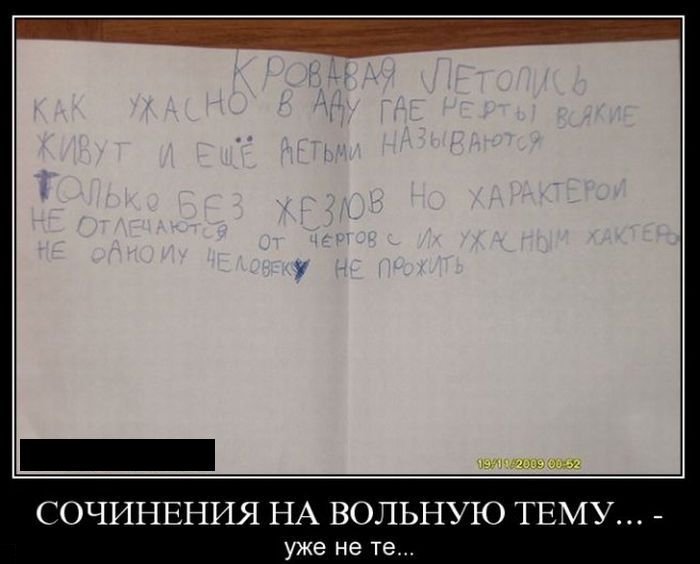 КРОВАВАЯ ЛЕТОПИСЬ
КАК УЖАСНО В АДУ ГДЕ ЧЕРТЫ ВСЯКИЕ
ЖИВУТ И ЕЩЁ ДЕТЬМИ НАЗЫВАЮТСЯ
ТОЛЬКО БЕЗ ЖЕЗЛОВ НО ХАРАКТЕРОМ
НЕ ОТЛЕЧАЮТСЯ ОТ ЧЕРТОВ С ИХ УЖАСНЫМ ХАКТЕРО
НЕ ОДНОМУ ЧЕЛОВЕКУ НЕ ПРОЖИТЬ
19/11/2009 00:52
СОЧИНЕНИЯ НА ВОЛЬНУЮ ТЕМУ... -
уже не те...